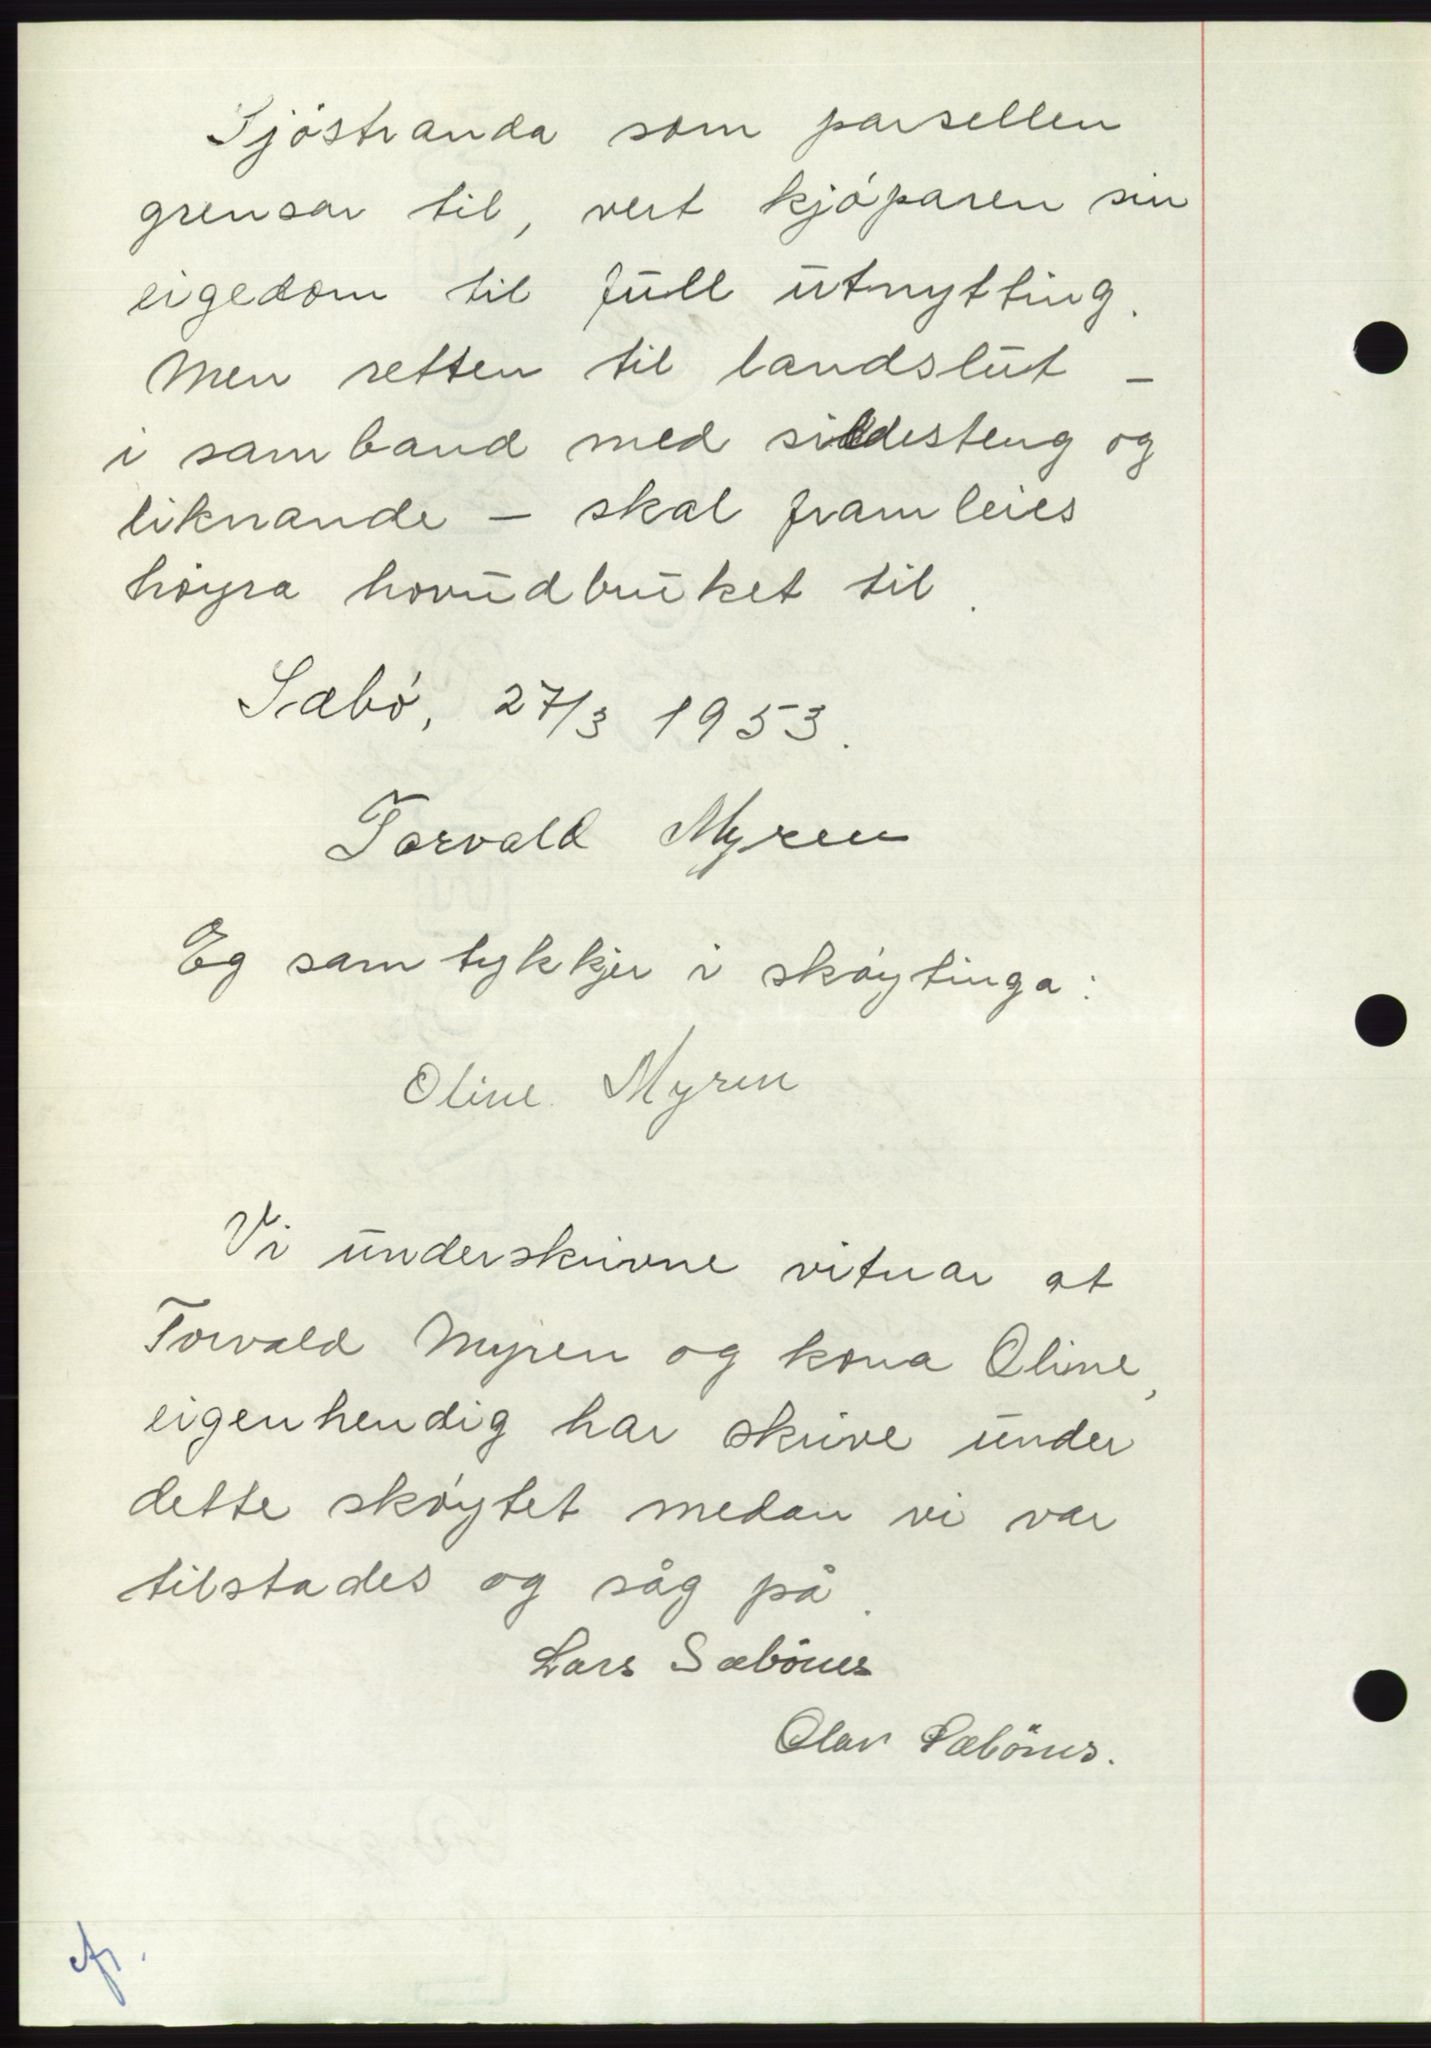 Sjöstranda som parsellen
grensar til, vert kjóparen sin
eigedom til full utnytting.
Men retten til landslut –
i samband med sildesteng og
liknande – skal framleies
høyra hovudbruket til.
Sæbó, 27/3 1953.
Torvald Myren
Eg samtykkjer i skóytinga:
Oline Myren
Vi underskrivne vitnar at
Torvald Myren og kona Oline,
eigenhendig har skrive under
dette skóytet medan vi var
tilstades og såg på.
Lars Sæbönes
Olav Sæbönes.